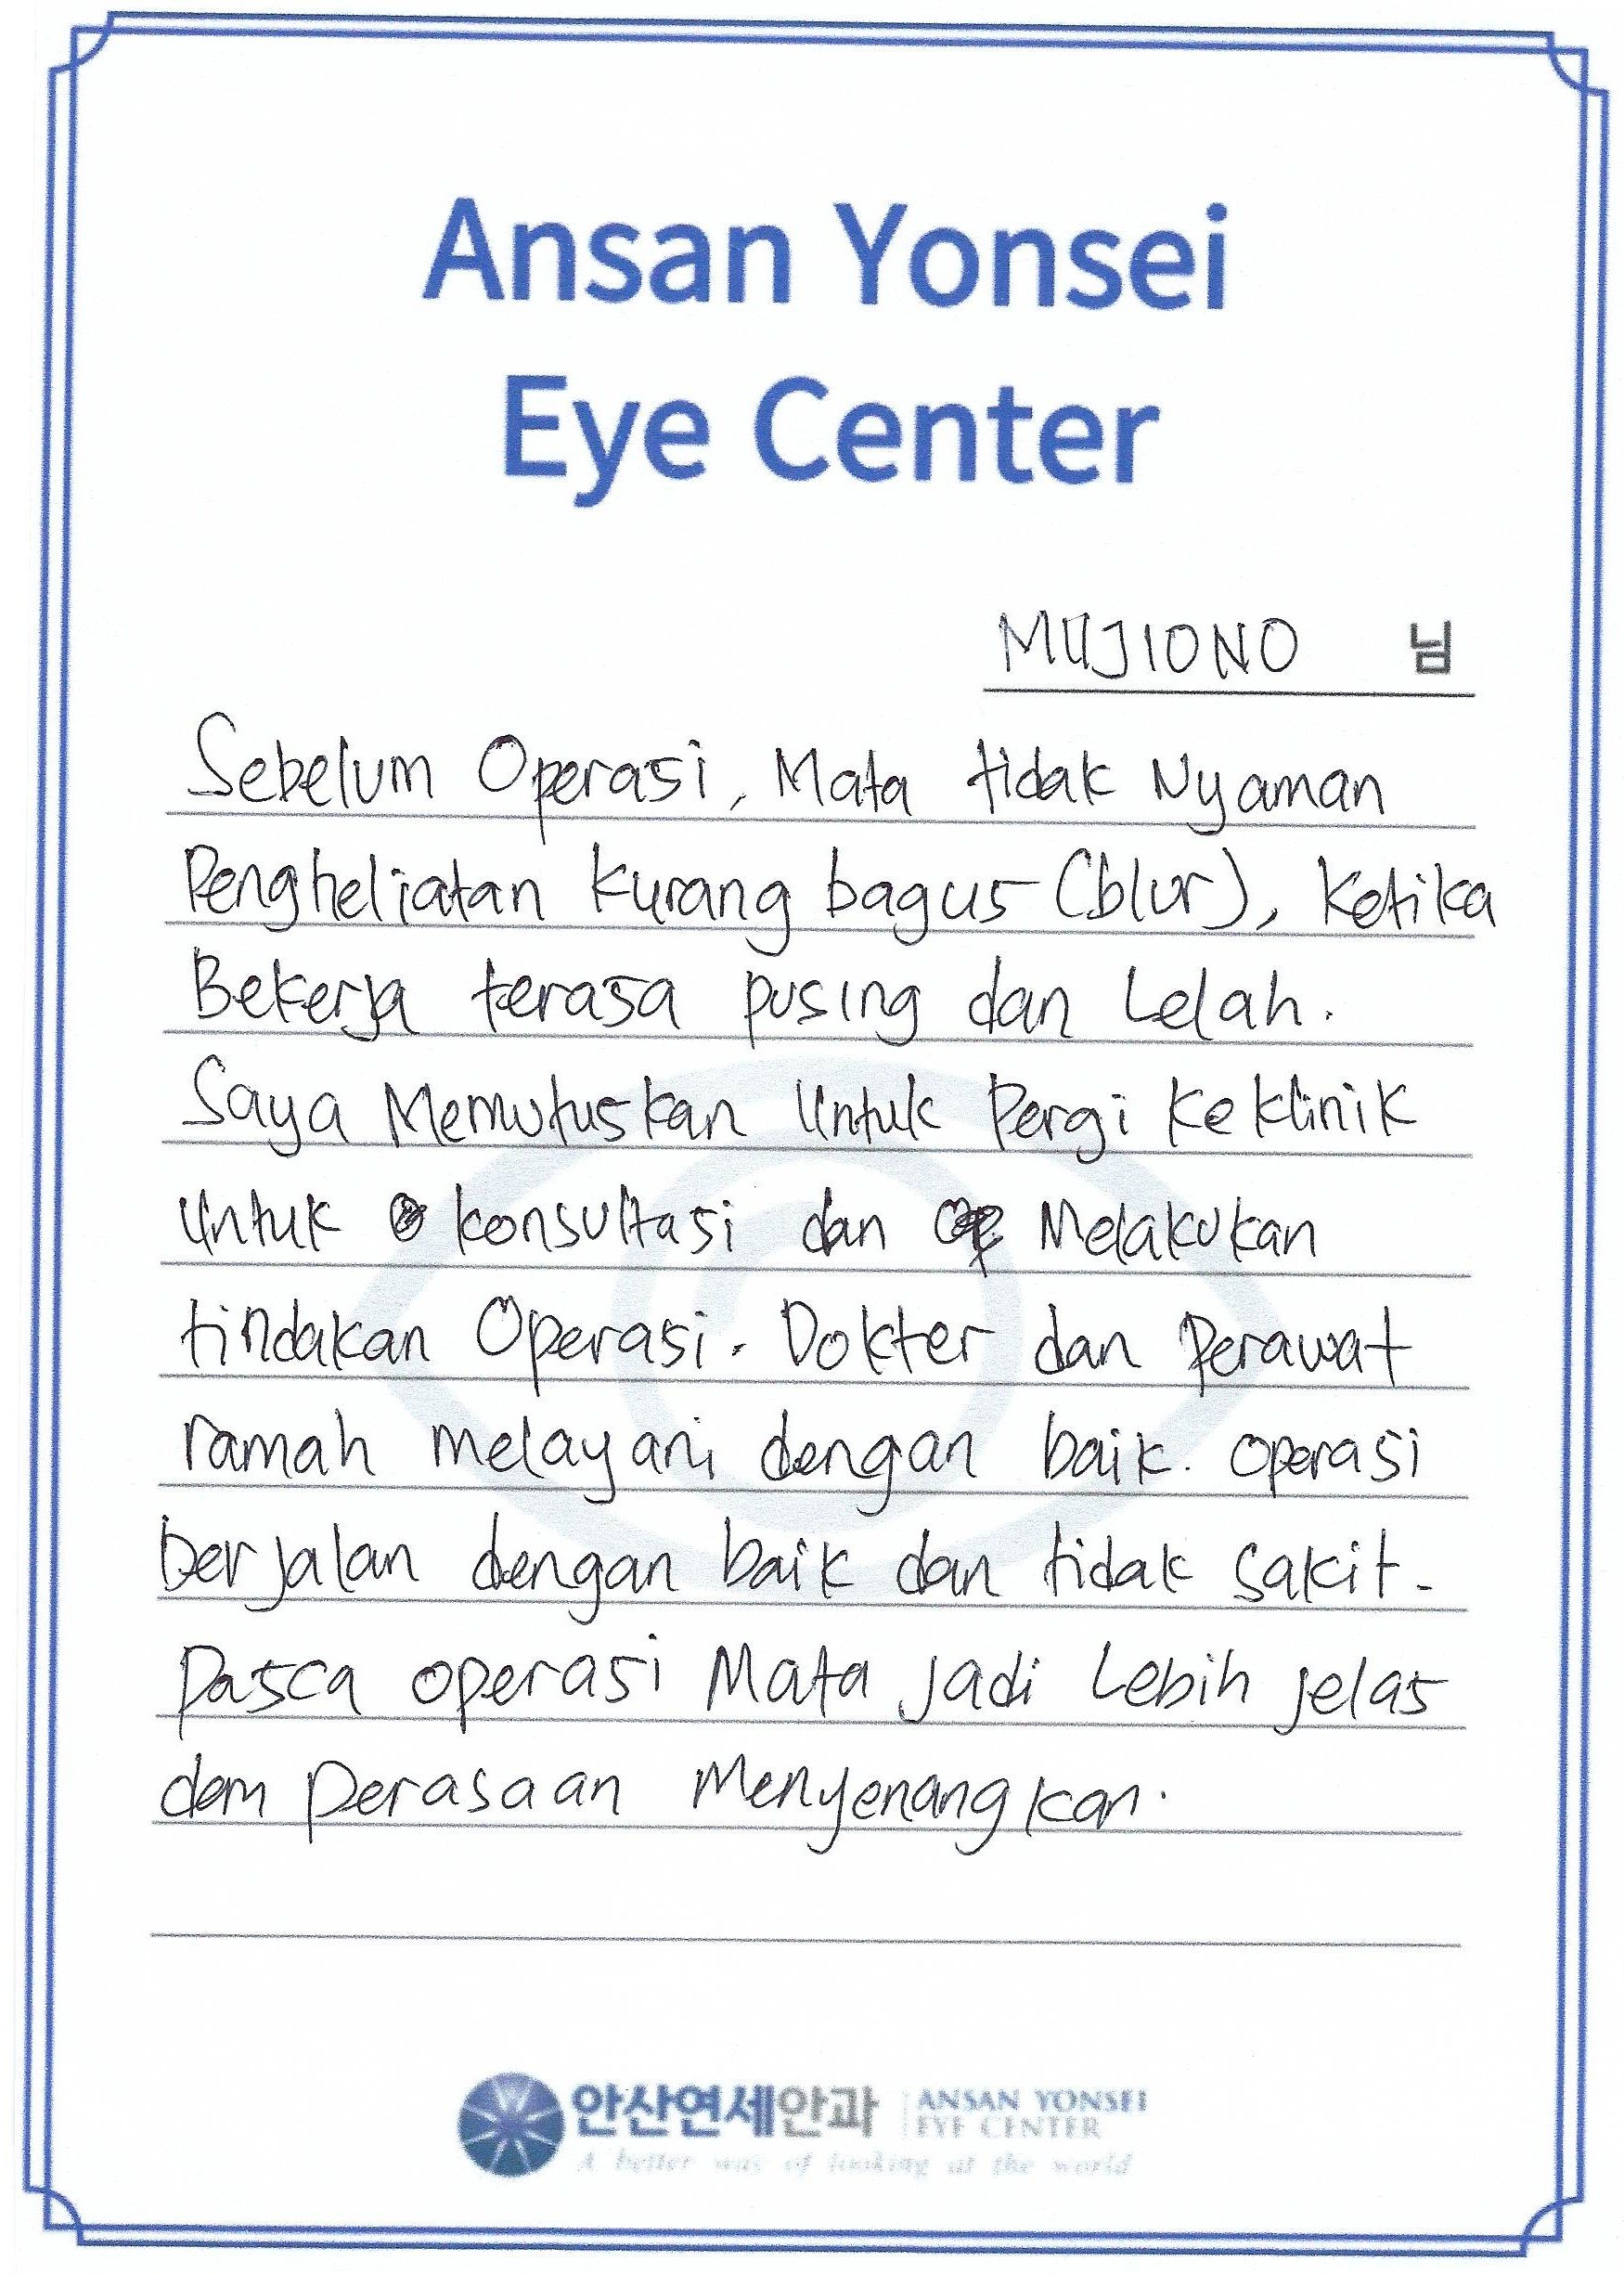 Ansan Yonsei
Eye Center
MUJIONO 님
Sebelum Operasi, Mata tidak Nyaman
Pengheliatan kurang bagus (blur), Ketika
Bekerja terasa pusing dan Lelah.
Saya Memutuskan Untuk Pergi Ke Klinik
Untuk konsultasi dan Melakukan
tindakan Operasi. Dokter dan Perawat
ramah melayani dengan baik. Operasi
berjalan dengan baik dan tidak sakit.
Pasca operasi Mata jadi Lebih jelas
dan perasaan Menyenangkan.
안산연세안과 ANSAN YONSEI
EYE CENTER
A better way of looking at the world